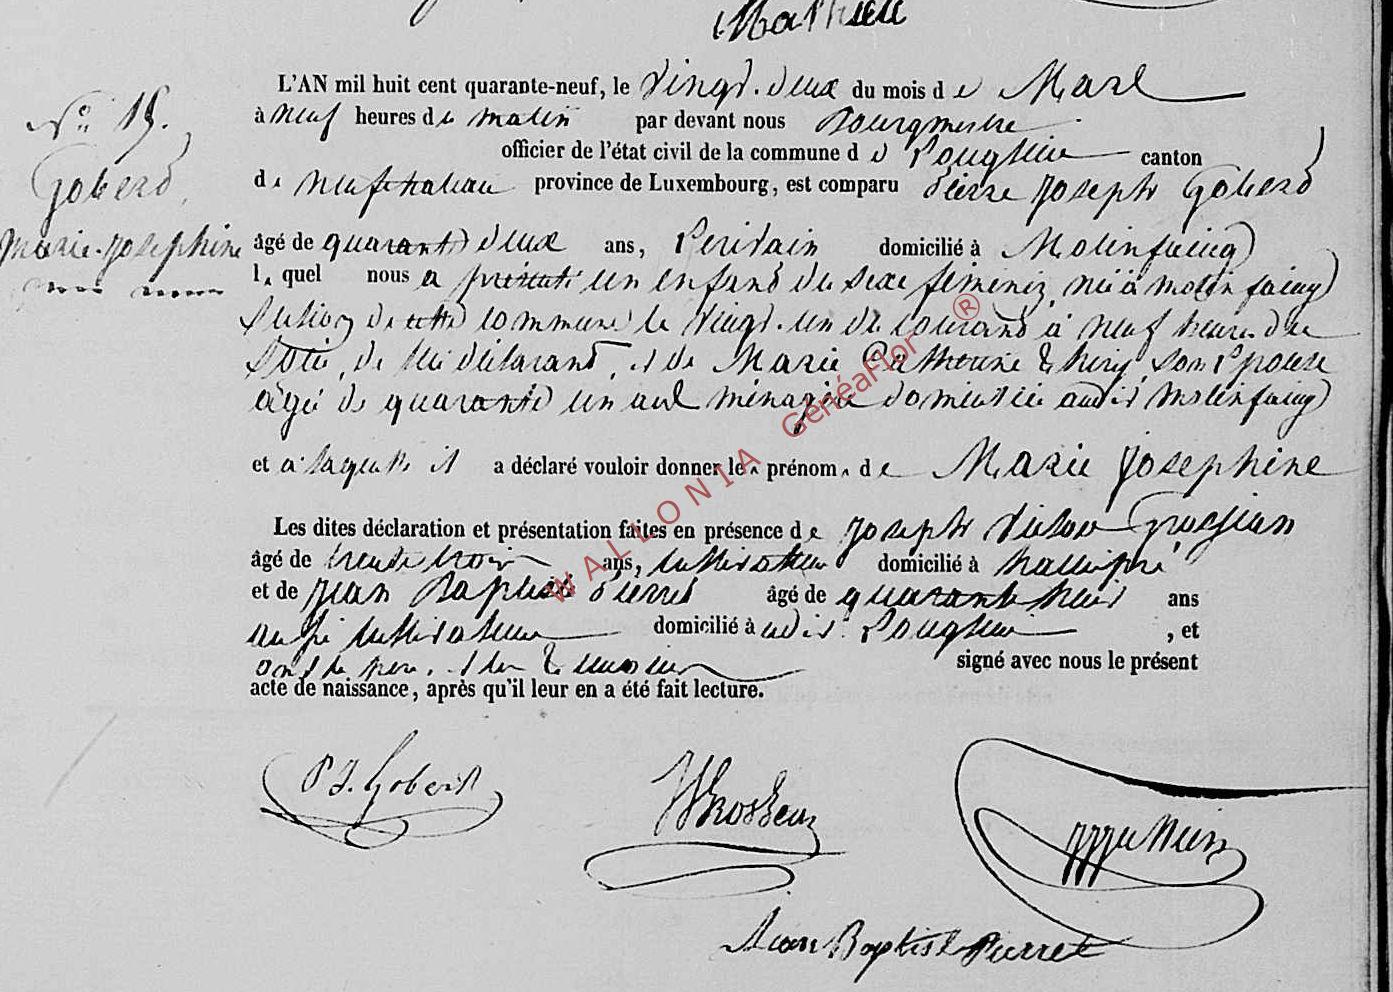 Mathieu
L'AN mil huit cent quarante-neuf, le vingt-deux du mois de Mars
N° 15.
à neuf heures du matin par devant nous Bourgmestre
officier de l'état civil de la commune de canton
Gobert
de Neufchateau province de Luxembourg, est comparu Pierre Joseph Gobert
Marie-Josephine
âgé de quarante deux ans, domicilié à Molinfaing
lequel nous a présenté un enfant du sexe feminin, né à molinfaing
section de cette commune le vingt-un du courant à neuf heures du
soir, de lui déclarant, et de Marie Catherine Thiry, son épouse
agée de quarante un ans ménagère domiciliée audit Molinfaing
et a laquelle il a déclaré vouloir donner les prénoms de Marie Josephine
Les dites déclaration et présentation faites en présence de Joseph
âgé de trente trois ans, cultivateur domicilié à
et de Jean Baptiste Pierret âgé de quarante huit ans
aussi cultivateur domicilié à udit , et
ont le père et les témoins signé avec nous le présent
acte de naissance, après qu'il leur en a été fait lecture.
P J. Gobert
Jean Baptist Pierret
WALLONIA Généaflor ®